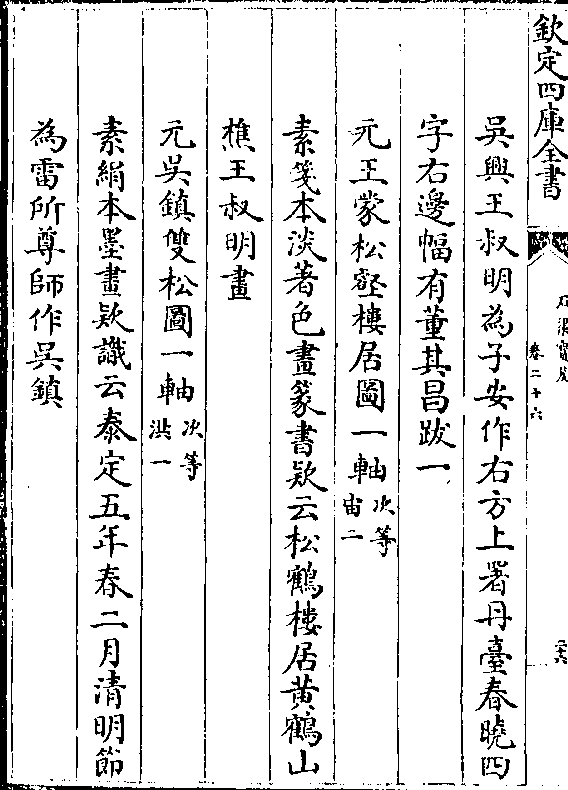 欽定四庫全書
卷二十六
吳興王叔明為子安作右方上署丹臺春曉四
字右邊幅有董其昌跋一
元王蒙松壑樓居圖一軸次等宙二
素箋本淡著色畫篆書欵云松鶴樓居黃鶴山
樵王叔明畫
元吳鎮雙松圖一軸次等洪一
素絹本墨畫欵識云泰定五年春二月清明節
為雷所尊師作吳鎮